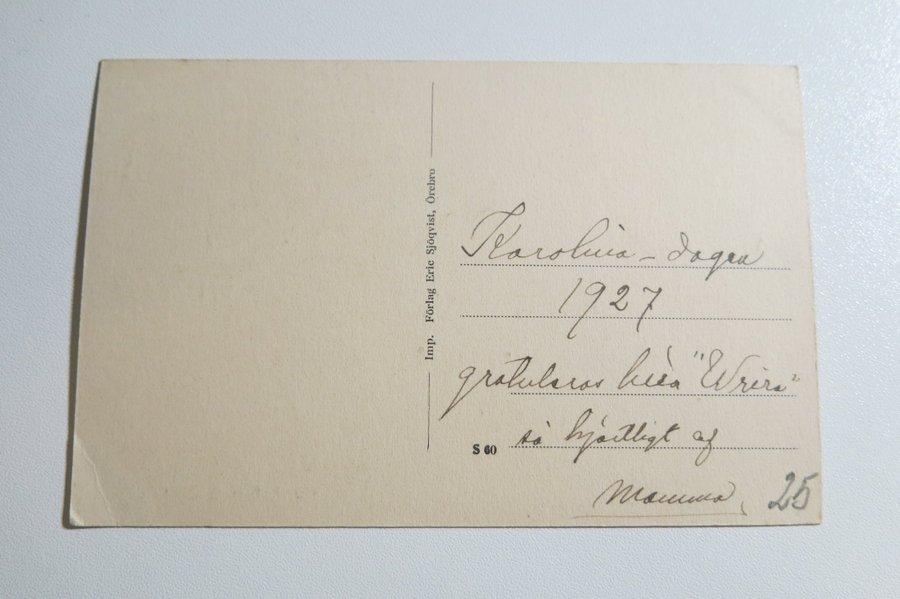 Imp. Förlag Eric Sjöqvist, Örebro
Karolina-dagen
1927
gratuleras lilla
så hjärtligt af
Mamma
S 60
25